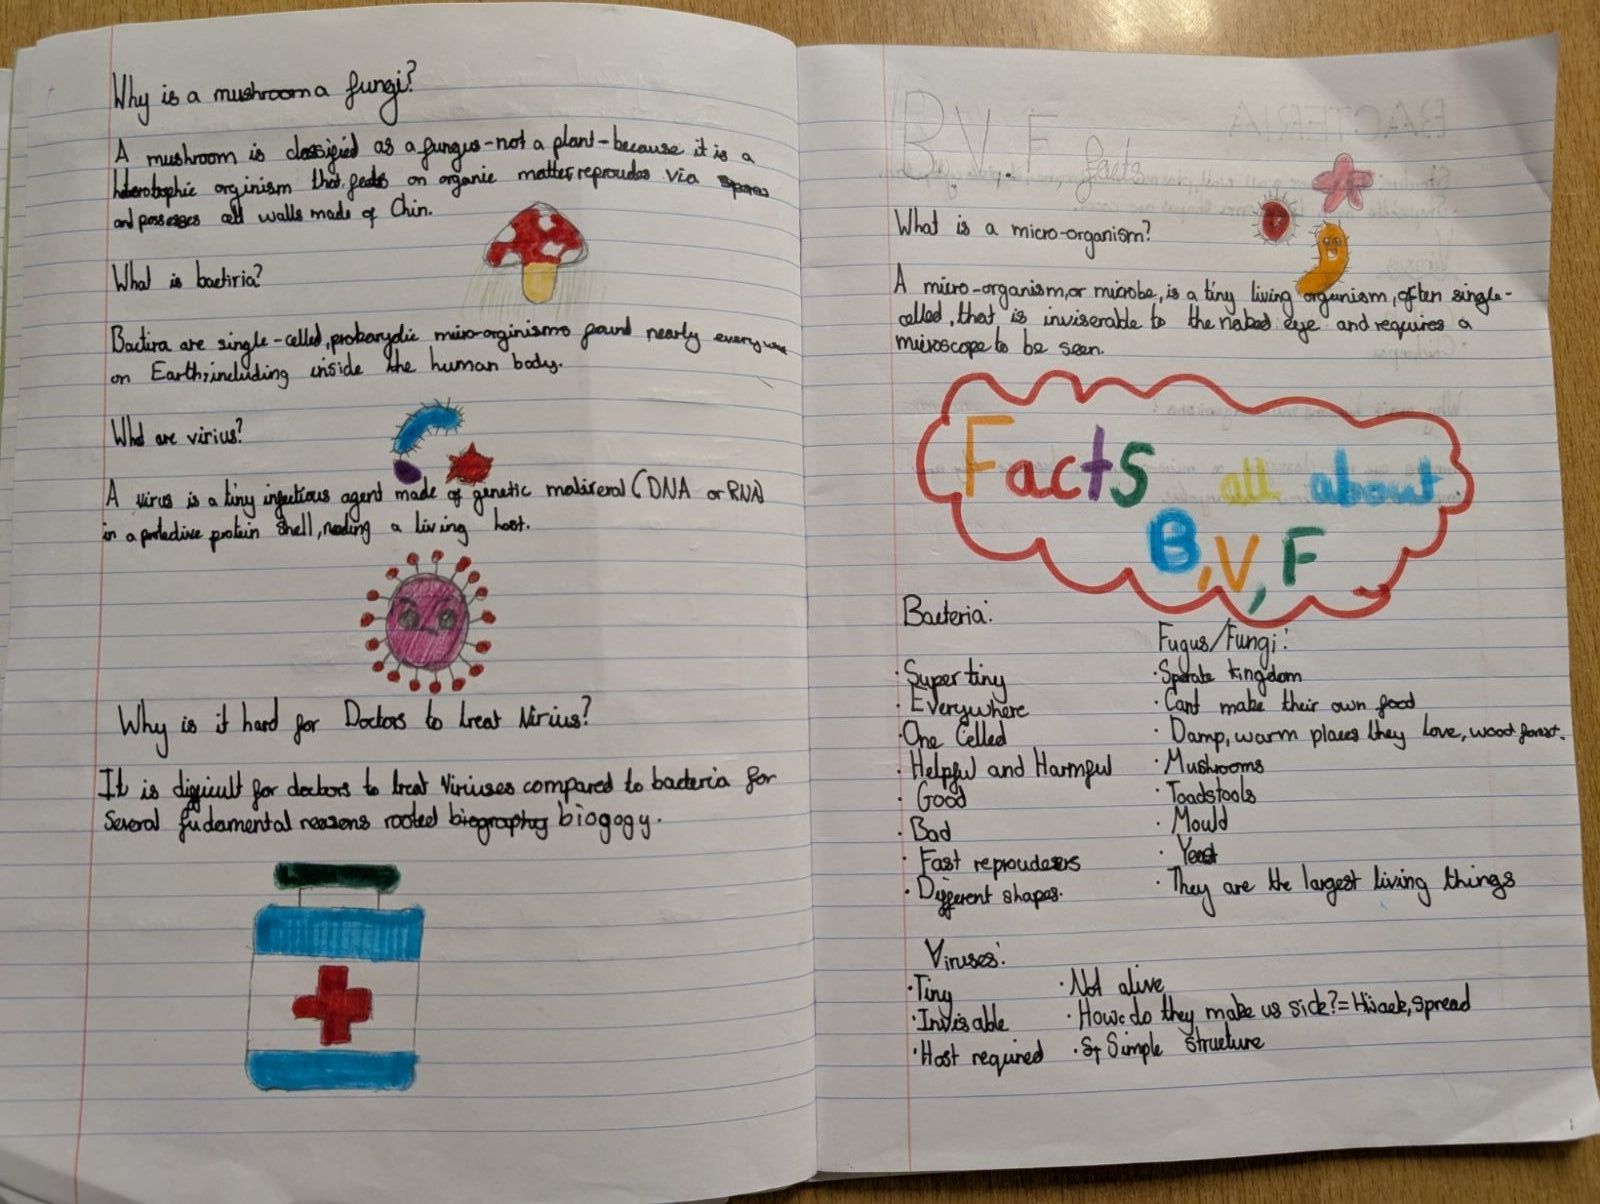 Why is a mushroom a fungi?
A mushroom is classified as a fungus-not a plant-because it is a
heterotophic orginism that feeds on organic matter, reproudes via spores
and possesses cell walls made of Chin.
What is bactiria?
Bactira are single-celled, prokarydic micro-orginisms found nearly everywhere
on Earth, including inside the human body.
What are virius?
A virus is a tiny infectious agent made of genetic matireral (DNA or RNA)
in a protective protein shell, needing a living host.
Why is it hard for Doctors to treat Virius?
It is difficult for doctors to treat Viriuses compared to bacteria for
Several fudamental reasons rooted biography biogogy.
B.V.F facts
What is a micro-organism?
A micro-organism, or microbe, is a tiny living organism, often single-
celled, that is inviserable to the naked eye and requires a
microscope to be seen.
Facts all about
B, V, F
Bacteria:
· Super tiny
· Everywhere
· One Celled
· Helpful and Harmful
· Good
· Bad
· Fast reproudesers
· Different shapes.
Fugus/Fungi:
· Sperate kingdom
· Cant make their own food
· Damp, warm places they love, wood forest.
· Mushrooms
· Toadstools
· Mould
· Yeast
· They are the largest living things
Viruses:
· Tiny
· Invisable
· Host required
· Not alive
· How do they make us sick? = Hijack, spread
· St Simple structure